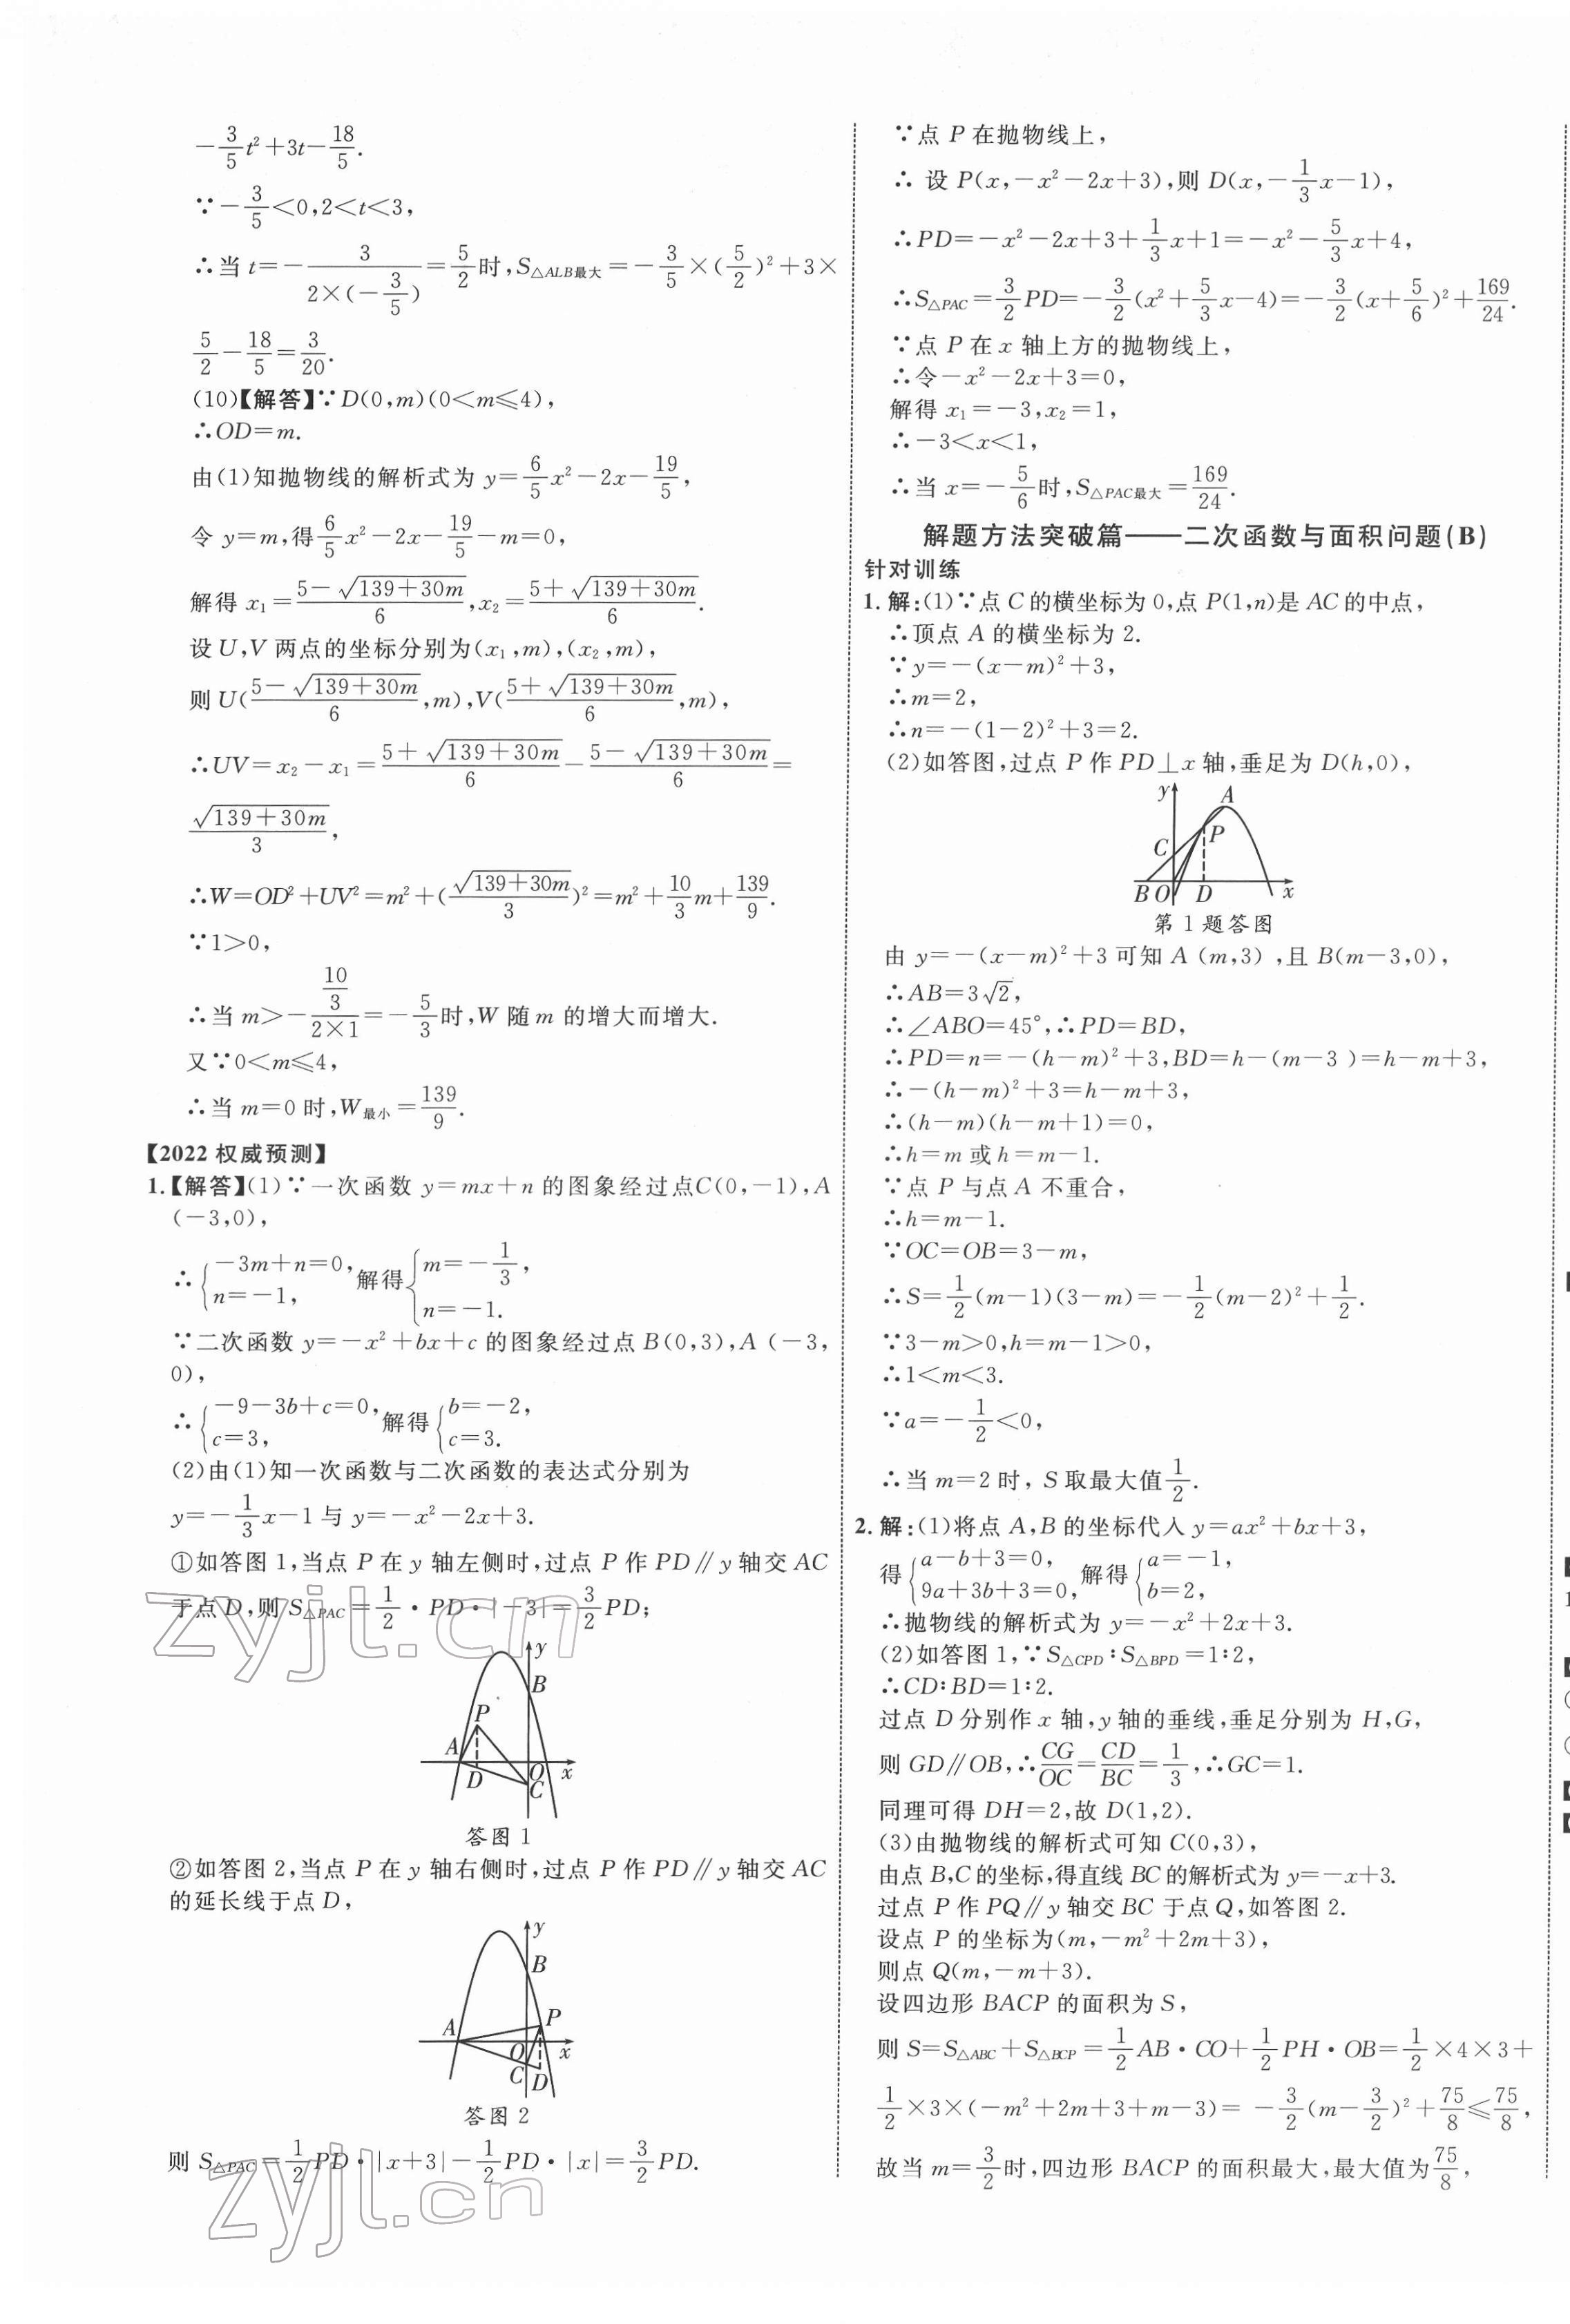 −3/5t²+3t−18/5.
∵−3/5<0,2<t<3,
∴当 t=−3/(2×(−3/5))=5/2时,S△ALB最大=−3/5×(5/2)²+3×
5/2−18/5=3/20.
(10)【解答】∵D(0,m)(0<m≤4),
∴OD=m.
由(1)知抛物线的解析式为 y=6/5x²−2x−19/5,
令 y=m,得6/5x²−2x−19/5−m=0,
解得 x₁=(5−√(139+30m))/6,x₂=(5+√(139+30m))/6.
设 U,V 两点的坐标分别为(x₁,m),(x₂,m),
则 U((5−√(139+30m))/6,m),V((5+√(139+30m))/6,m),
∴UV=x₂−x₁=(5+√(139+30m))/6−(5−√(139+30m))/6=
√(139+30m)/3,
∴W=OD²+UV²=m²+(√(139+30m)/3)²=m²+10/3m+139/9.
∵1>0,
∴当 m>−(10/3)/(2×1)=−5/3时,W 随 m 的增大而增大.
又∵0<m≤4,
∴当 m=0 时,W最小=139/9.
【2022 权威预测】
1.【解答】(1)∵一次函数 y=mx+n 的图象经过点C(0,−1),A
(−3,0),
∴{−3m+n=0, n=−1, 解得{m=−1/3, n=−1.
∵二次函数 y=−x²+bx+c 的图象经过点 B(0,3),A(−3,
0),
∴{−9−3b+c=0, c=3, 解得{b=−2, c=3.
(2)由(1)知一次函数与二次函数的表达式分别为
y=−1/3x−1 与 y=−x²−2x+3.
①如答图 1,当点 P 在 y 轴左侧时,过点 P 作 PD∥y 轴交 AC
于点 D,则 S△PAC=1/2·PD·|−3|=3/2PD;
y
B
P
A
D
O
x
C
答图 1
②如答图 2,当点 P 在 y 轴右侧时,过点 P 作 PD∥y 轴交 AC
的延长线于点 D,
y
B
A
P
O
x
C
D
答图 2
则 S△PAC=1/2PD·|x+3|−1/2PD·|x|=3/2PD.
zyjl.cn
zyjl.cn
∵点 P 在抛物线上,
∴ 设 P(x,−x²−2x+3),则 D(x,−1/3x−1),
∴PD=−x²−2x+3+1/3x+1=−x²−5/3x+4,
∴S△PAC=3/2PD=−3/2(x²+5/3x−4)=−3/2(x+5/6)²+169/24.
∵点 P 在 x 轴上方的抛物线上,
∴令−x²−2x+3=0,
解得 x₁=−3,x₂=1,
∴−3<x<1,
∴当 x=−5/6时,S△PAC最大=169/24.
解题方法突破篇——二次函数与面积问题(B)
针对训练
1. 解:(1)∵点 C 的横坐标为 0,点 P(1,n)是 AC 的中点,
∴顶点 A 的横坐标为 2.
∵y=−(x−m)²+3,
∴m=2,
∴n=−(1−2)²+3=2.
(2)如答图,过点 P 作 PD⊥x 轴,垂足为 D(h,0),
y
A
P
C
B
O
D
x
第 1 题答图
由 y=−(x−m)²+3 可知 A(m,3),且 B(m−3,0),
∴AB=3√2,
∴∠ABO=45°,∴PD=BD,
∴PD=n=−(h−m)²+3,BD=h−(m−3)=h−m+3,
∴−(h−m)²+3=h−m+3,
∴(h−m)(h−m+1)=0,
∴h=m 或 h=m−1.
∵点 P 与点 A 不重合,
∴h=m−1.
∵OC=OB=3−m,
∴S=1/2(m−1)(3−m)=−1/2(m−2)²+1/2.
∵3−m>0,h=m−1>0,
∴1<m<3.
∵a=−1/2<0,
∴当 m=2 时, S 取最大值1/2.
2. 解:(1)将点 A,B 的坐标代入 y=ax²+bx+3,
得{a−b+3=0, 9a+3b+3=0, 解得{a=−1, b=2,
∴抛物线的解析式为 y=−x²+2x+3.
(2)如答图 1,∵S△CPD∶S△BPD=1∶2,
∴CD∶BD=1∶2.
过点 D 分别作 x 轴,y 轴的垂线,垂足分别为 H,G,
则 GD∥OB,∴CG/OC=CD/BC=1/3,∴GC=1.
同理可得 DH=2,故 D(1,2).
(3)由抛物线的解析式可知 C(0,3),
由点 B,C 的坐标,得直线 BC 的解析式为 y=−x+3.
过点 P 作 PQ∥y 轴交 BC 于点 Q,如答图 2.
设点 P 的坐标为(m,−m²+2m+3),
则点 Q(m,−m+3).
设四边形 BACP 的面积为 S,
则 S=S△ABC+S△BCP=1/2AB·CO+1/2PH·OB=1/2×4×3+
1/2×3×(−m²+2m+3+m−3)= −3/2(m−3/2)²+75/8≤75/8,
故当 m=3/2时,四边形 BACP 的面积最大,最大值为75/8,